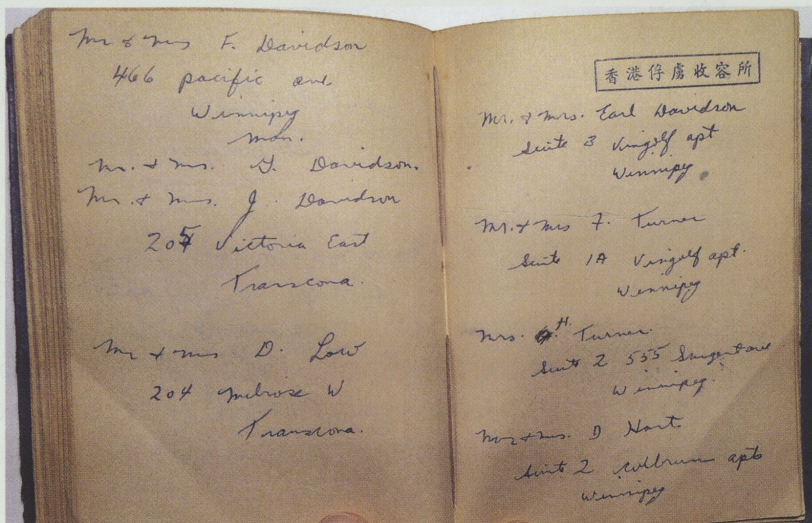 Mr & Mrs F. Davidson
466 pacific ave
Winnipeg
Man.
Mr. & Mrs. G. Davidson.
Mr. & Mrs. J. Davidson
205 Victoria East
Transcona.
Mr & Mrs D. Low
204 Melrose W
Transcona.
香港俘虜收容所
Mr. & Mrs. Earl Davidson
Suite 3 Vingolf apt
Winnipeg
Mr. & Mrs F. Turner
Suite 1A Vingolf apt.
Winnipeg
Mrs. H. Turner.
Suite 2 555 Sargent ave
Winnipeg.
Mr & Mrs. D Hart
Suite 2 apts
Winnipeg